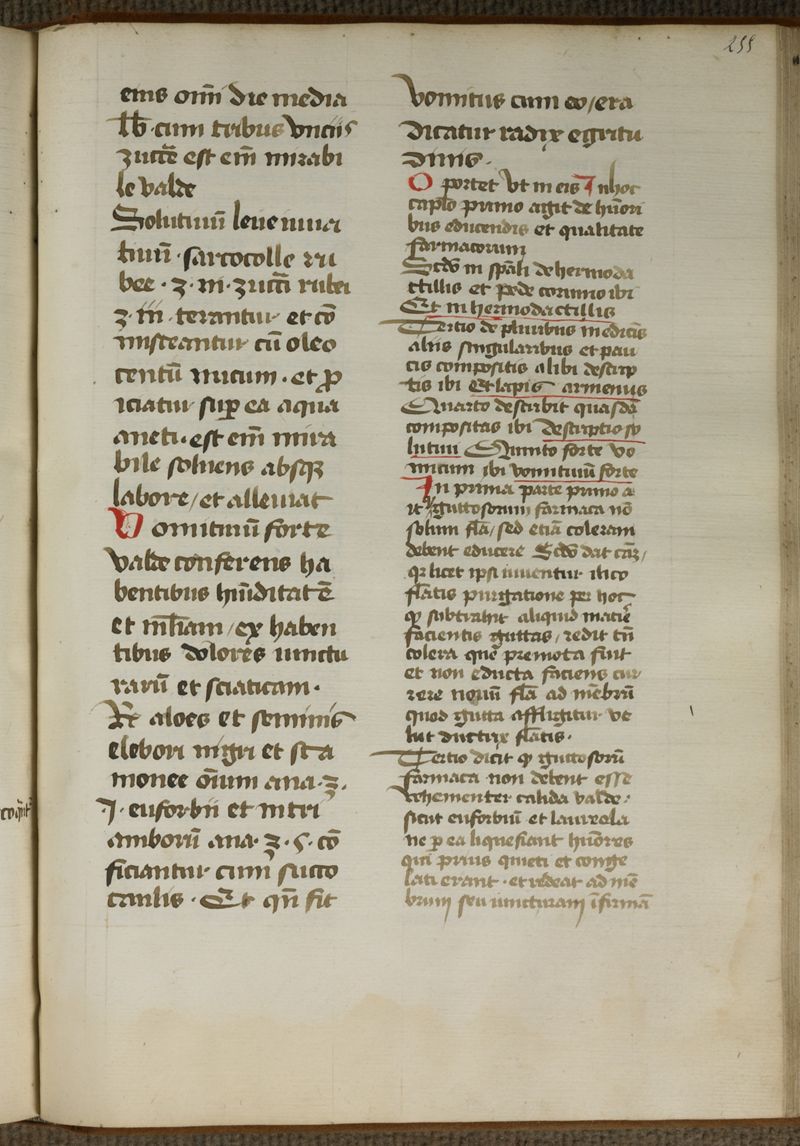 255
eius om̄i die media
lb̄ · cum tribus vnciis
zucē est em̄ mirabi
le valde
Solutiuū leue mira
tiuū · sarcocolle ru
bee · ʒ · iii · zucā rubei
ʒ · iii · terantur et cō
misceantur cū oleo
centū nucum · et ꝓ
iciatur suꝑ ea aqua
aneti · est em̄ mira
bile soluens absqꝫ
labore / et alleuiat
Vomitiuū forte
valde conferens ha
bentibus hūiditatē
et mltam / ex haben
tibus dolores iunctu
rarū et sciaticam ·
Rͤ aloes et seminis
elebori nigri et sca
monee om̄ium ana · ʒ ·
j · euforbii et nitri
amborū ana · ʒ · ς · cō
ficiantur cum succo
caulis · Et qn̄ fit
vomitus cum eo / era
dicatur radix egritu
dinis ·
Oportet vt in eis In hoc
caplo primo agit de hūori
bus educendis et qualitate
farmacorum
Scdo in spāli de hermoda
ctillis et pede coruino ibi
Et in hermodactillis
Tertio de pluribus medicīs
aliis singularibus et pau
cis compositis alibi descrip
tis ibi Et lapis armenus
Quarto describit quasdā
compositas ibi descriptio so
lutiui Quinto forte vo
mitum ibi vomitiuū forte
In prima parte primo a
it gguttosorum farmaca nō
solum fla / sed etiā coleram
debent educere Scdo dat cām /
qꝛ licet ipsi iuuentur ilico
flātis purgatione per hoc
ꝙ subtrahit aliquid matīe
facientis guttas / redit tn̄
colera que premota fuit
et non educta faciens cur
rere nouū fla ad mēbrū
quod gutta affligitur ve
lut ductrix flātis ·
Tertio dicit ꝙ guttosorū
farmaca non debent esse
vehementer calida valde ·
sicut euforbiū et laureola
ne ꝑ ea liquefiant hūores
qui prius quieti et conge
lati erant · et redeat ad mē
brum seu iuncturam īfirmā